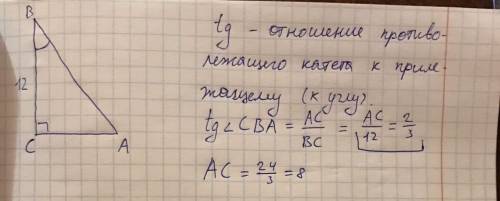 B
12
C
A
tg - отношение противо-
лежащего катета к приле-
жащему (к углу).
tg∠CBA = AC/BC = AC/12 = 2/3
AC = 24/3 = 8